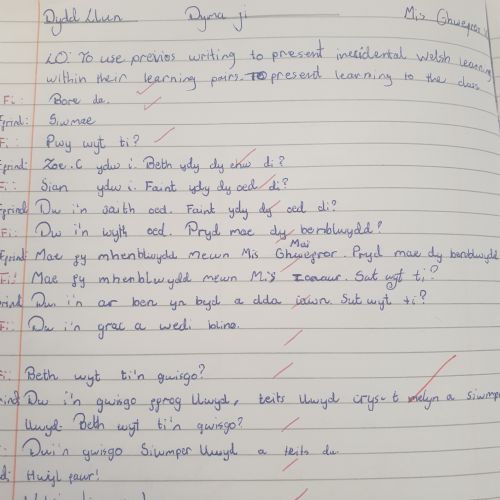 Dydd Llun Dyma ji Mis Ghwegror
LO: To use previos writing to present inesidental Welsh learning
within their learning pairs. To present learning to the class
Fi: Bore da.
Ffrind: Siwmae
Fi: Pwy wyt ti?
Ffrind: Zoe.C ydw i. Beth ydy dy enw di?
Fi: Sian ydw i. Faint ydy dy oed di?
Ffrind: Dw i'n saith oed. Faint ydy dy oed di?
Fi: Dw i'n wyth oed. Pryd mae dy benblwydd?
Ffrind: Mae fy mhenblwydd mewn Mis Ghwegror. Pryd mae dy benblwydd
Mai
Fi: Mae fy mhenblwydd mewn Mis Ionaur. Sut wyt ti?
Ffrind Dw i'n ar ben yn byd a dda iawn. Sut wyt ti?
Fi: Dw i'n grac a wedi blino.
Fi: Beth wyt ti'n gwisgo?
Ffrind Dw i'n gwisgo ffrog llwyd, teits llwyd crys-t melyn a siwmper
llwyd. Beth wyt ti'n gwisgo?
Dwi'n gwisgo Siwmper llwyd a teits du.
Hwyl fawr!